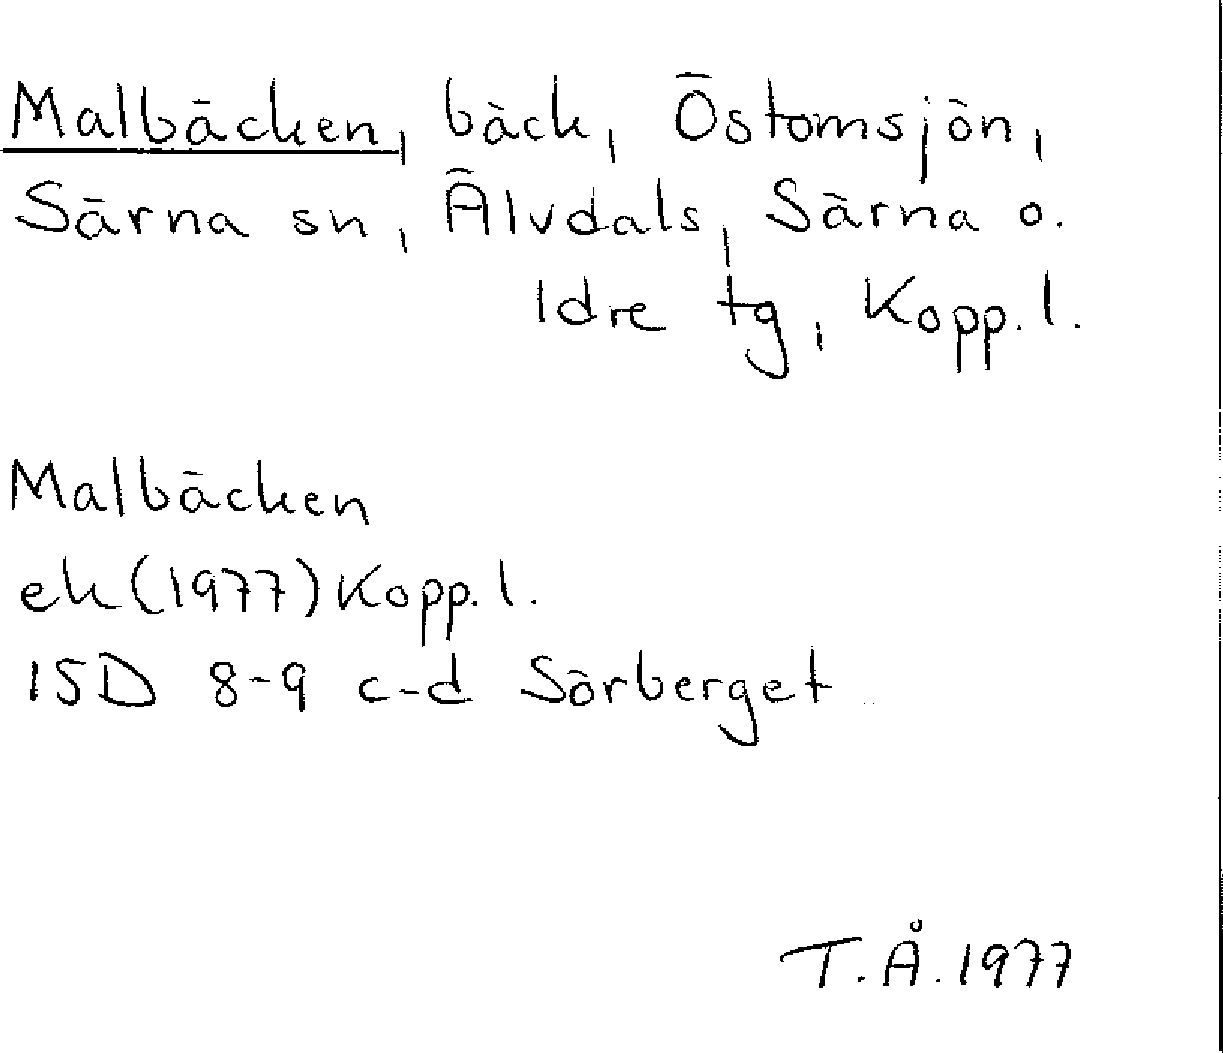 Malbäcken, bäck, Östomsjön,
Särna sn, Älvdals, Särna o.
Idre tg, Kopp. l.
Malbäcken
ek (1977) Kopp. l.
15D 8-9 c-d Sörberget
T.Å. 1977